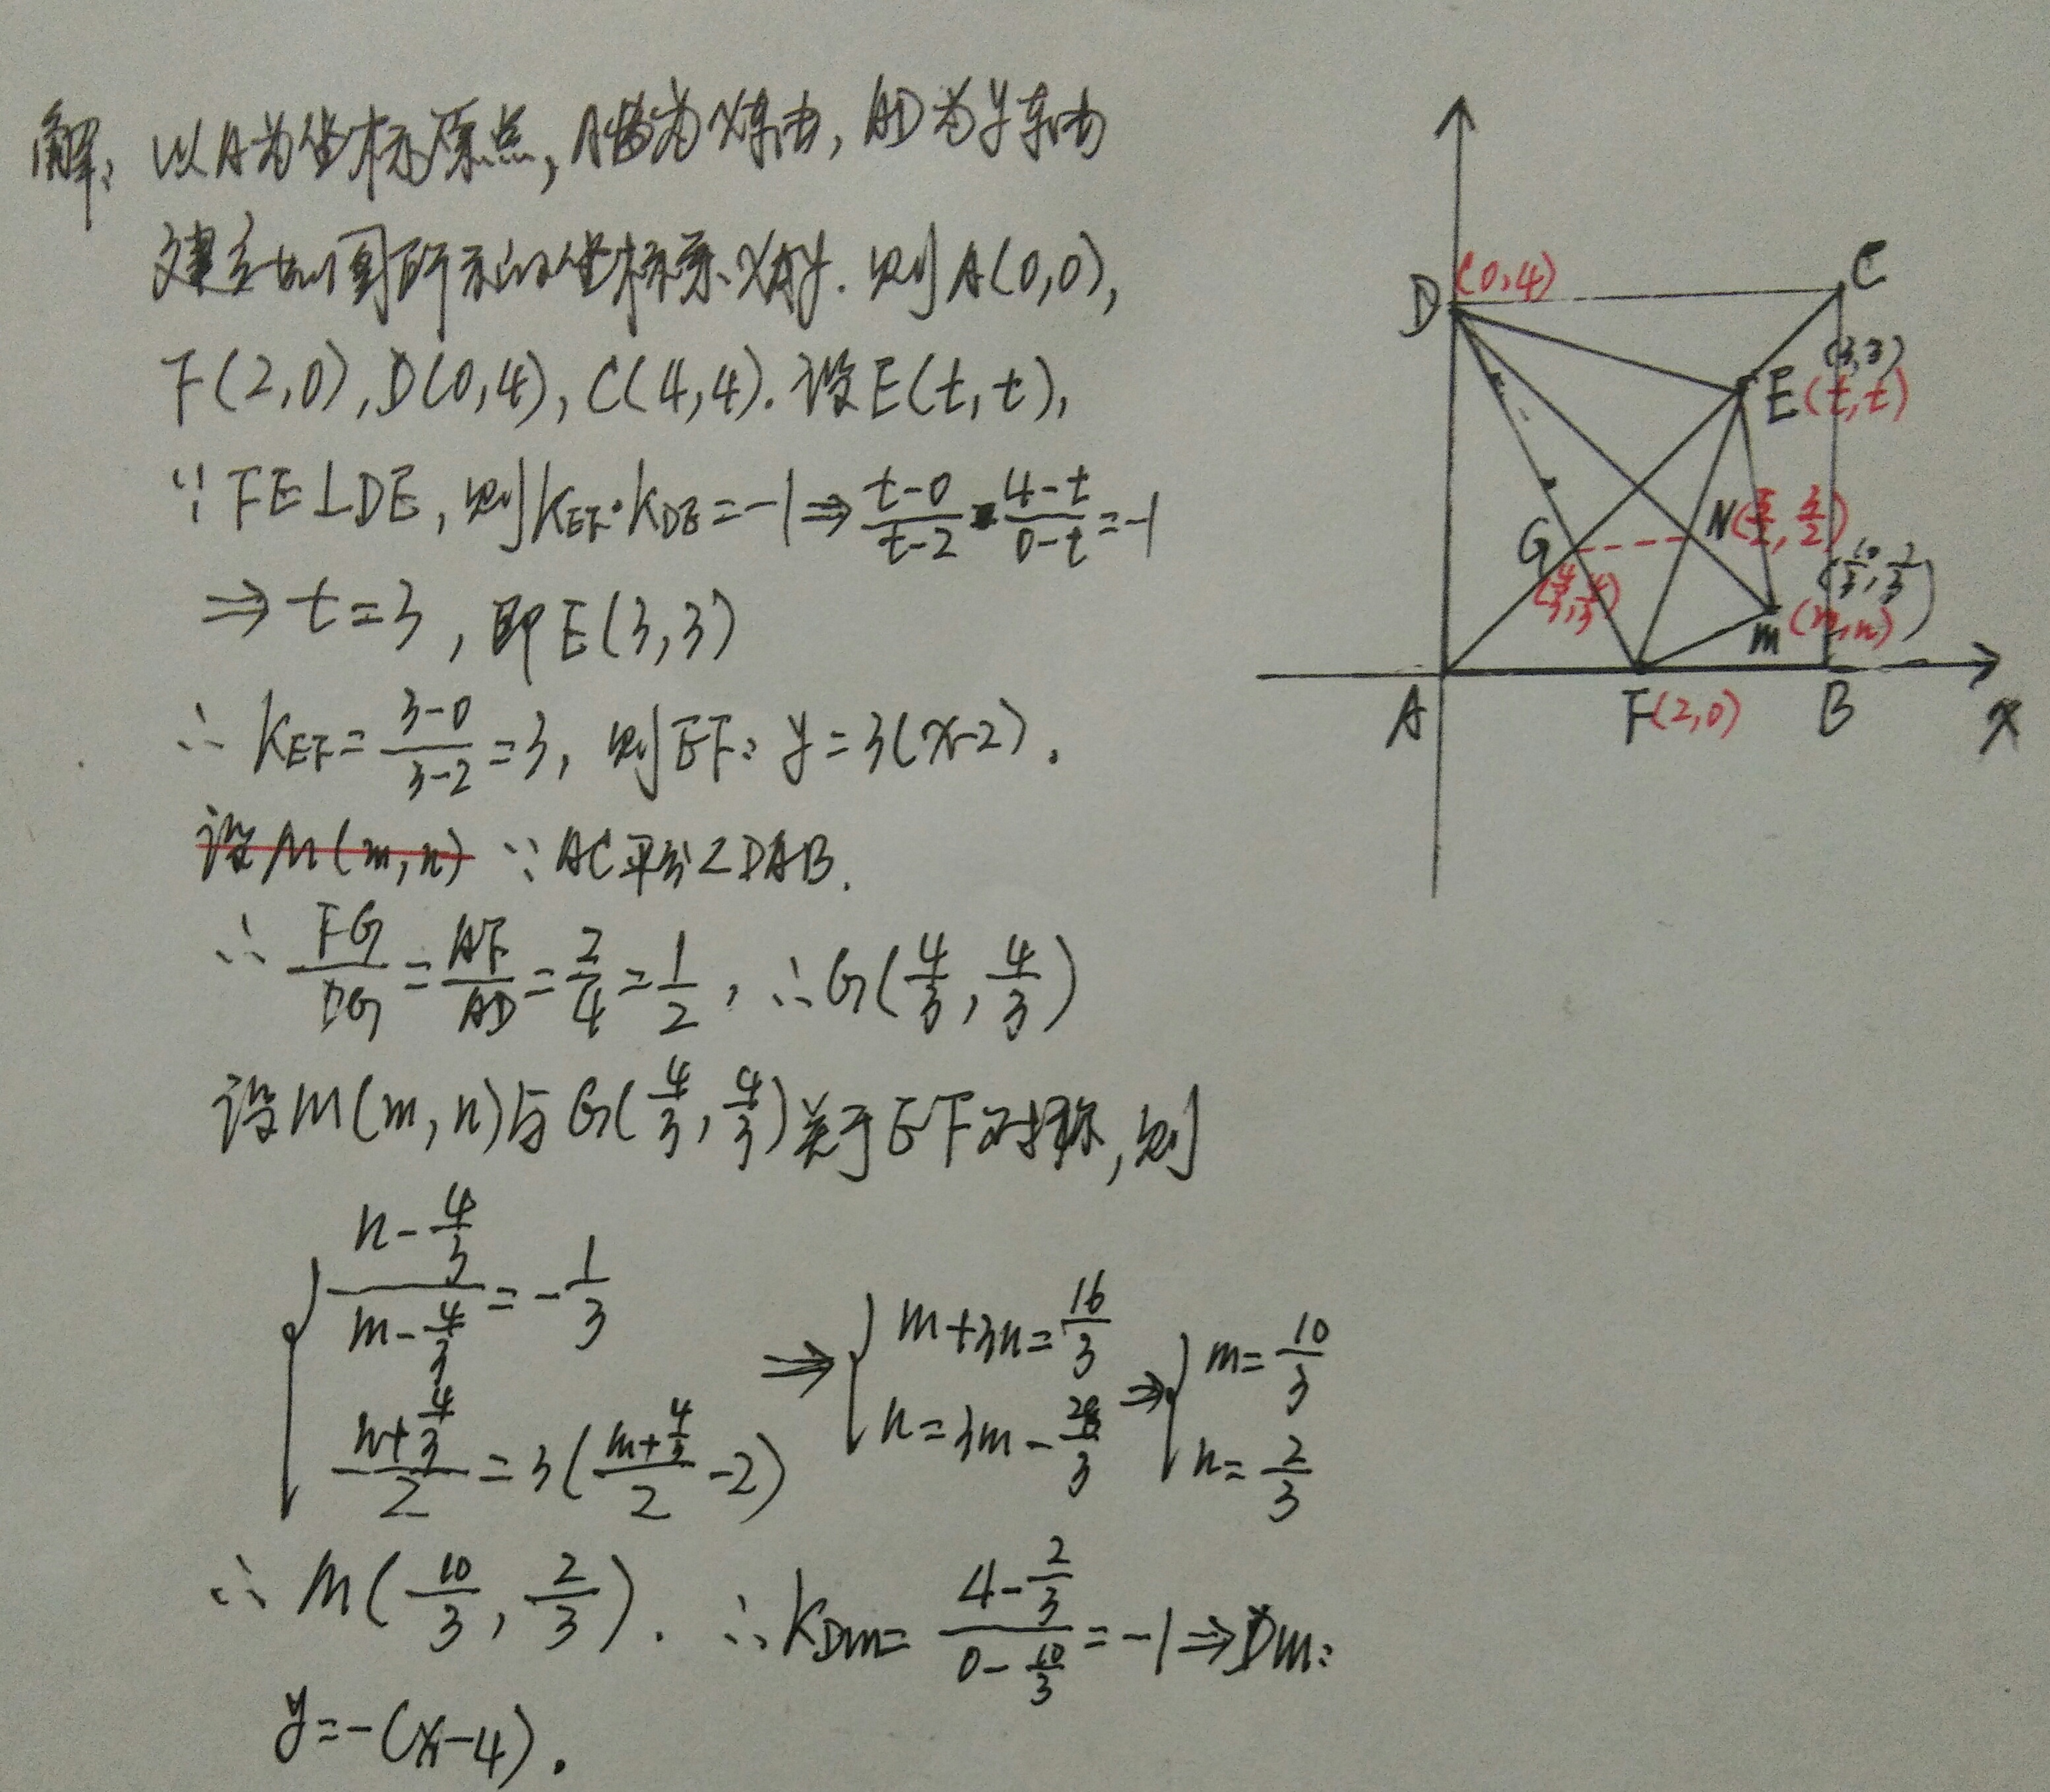 解: 以A为坐标原点, AB为x轴, AD为y轴
建立如图所示的坐标系xAy. 则A(0,0),
F(2,0), D(0,4), C(4,4). 设E(t,t),
∵FE⊥DE, 则K_EF·K_DE=-1⇒(t-0)/(t-2)·(4-t)/(0-t)=-1
⇒t=3, 即E(3,3)
∴K_EF=(3-0)/(3-2)=3, 则EF: y=3(x-2).
设M(m,n) ∵AC平分∠DAB.
∴FG/DG=AF/AD=2/4=1/2, ∴G(4/3, 4/3)
设M(m,n)与G(4/3, 4/3)关于EF对称, 则
{(n-4/3)/(m-4/3)=-1/3
(n+4/3)/2=3((m+4/3)/2-2)
⇒{m+3n=16/3
n=3m-28/3
⇒{m=10/3
n=2/3
∴M(10/3, 2/3). ∴K_DM=(4-2/3)/(0-10/3)=-1⇒DM:
y=-(x-4).
D (0,4)
C
(3,3)
E(t,t)
G
(4/3, 4/3)
N(5/2, 3/2)
(10/3, 2/3)
M (m,n)
A
F(2,0)
B
x